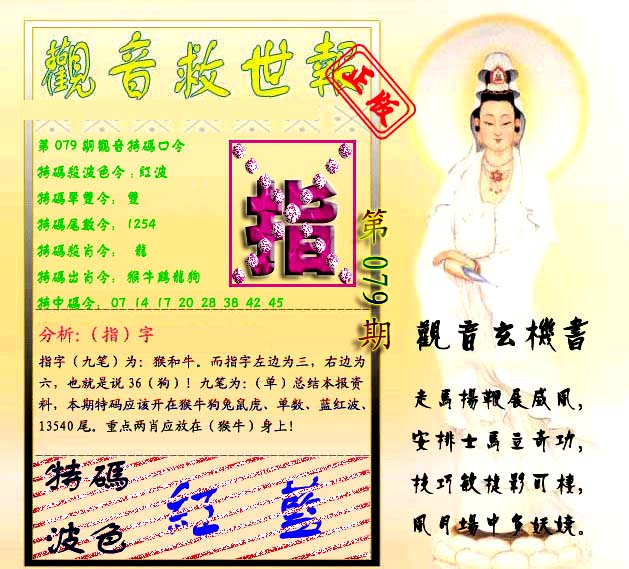 觀音救世報
正版
第079期觀音特碼口令
特碼殺波色令:紅波
特碼單雙令: 雙
特碼尾數令: 1254
特碼殺肖令: 龍
特碼出肖令: 猴牛鷄龍狗
特中碼令: 07 14 17 20 28 38 42 45
指
第079期
分析:（指）字
指字（九笔）为：猴和牛。而指字左边为三，右边为
六，也就是说 36（狗）！九笔为:（单）总结本报资
料，本期特码应该开在猴牛狗兔鼠虎、单数、蓝红波、
13540 尾。重点两肖应放在（猴牛）身上!
特碼
波色
紅 藍
觀音玄機書
走馬揚鞭展威風,
安排士馬立奇功,
技巧敏捷影可樓,
風月場中多妖嬈。